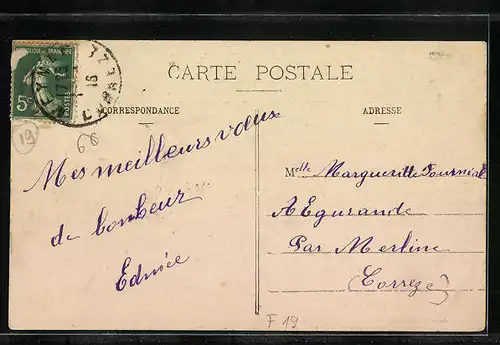 CARTE POSTALE
CORRESPONDANCE
ADRESSE
5c
POSTES
16
19
66
Mes meilleurs vœux
de bonheur
Edmée
Melle Marguerite Tournial
A Egurande
Par Merline
(Correze)
F 19